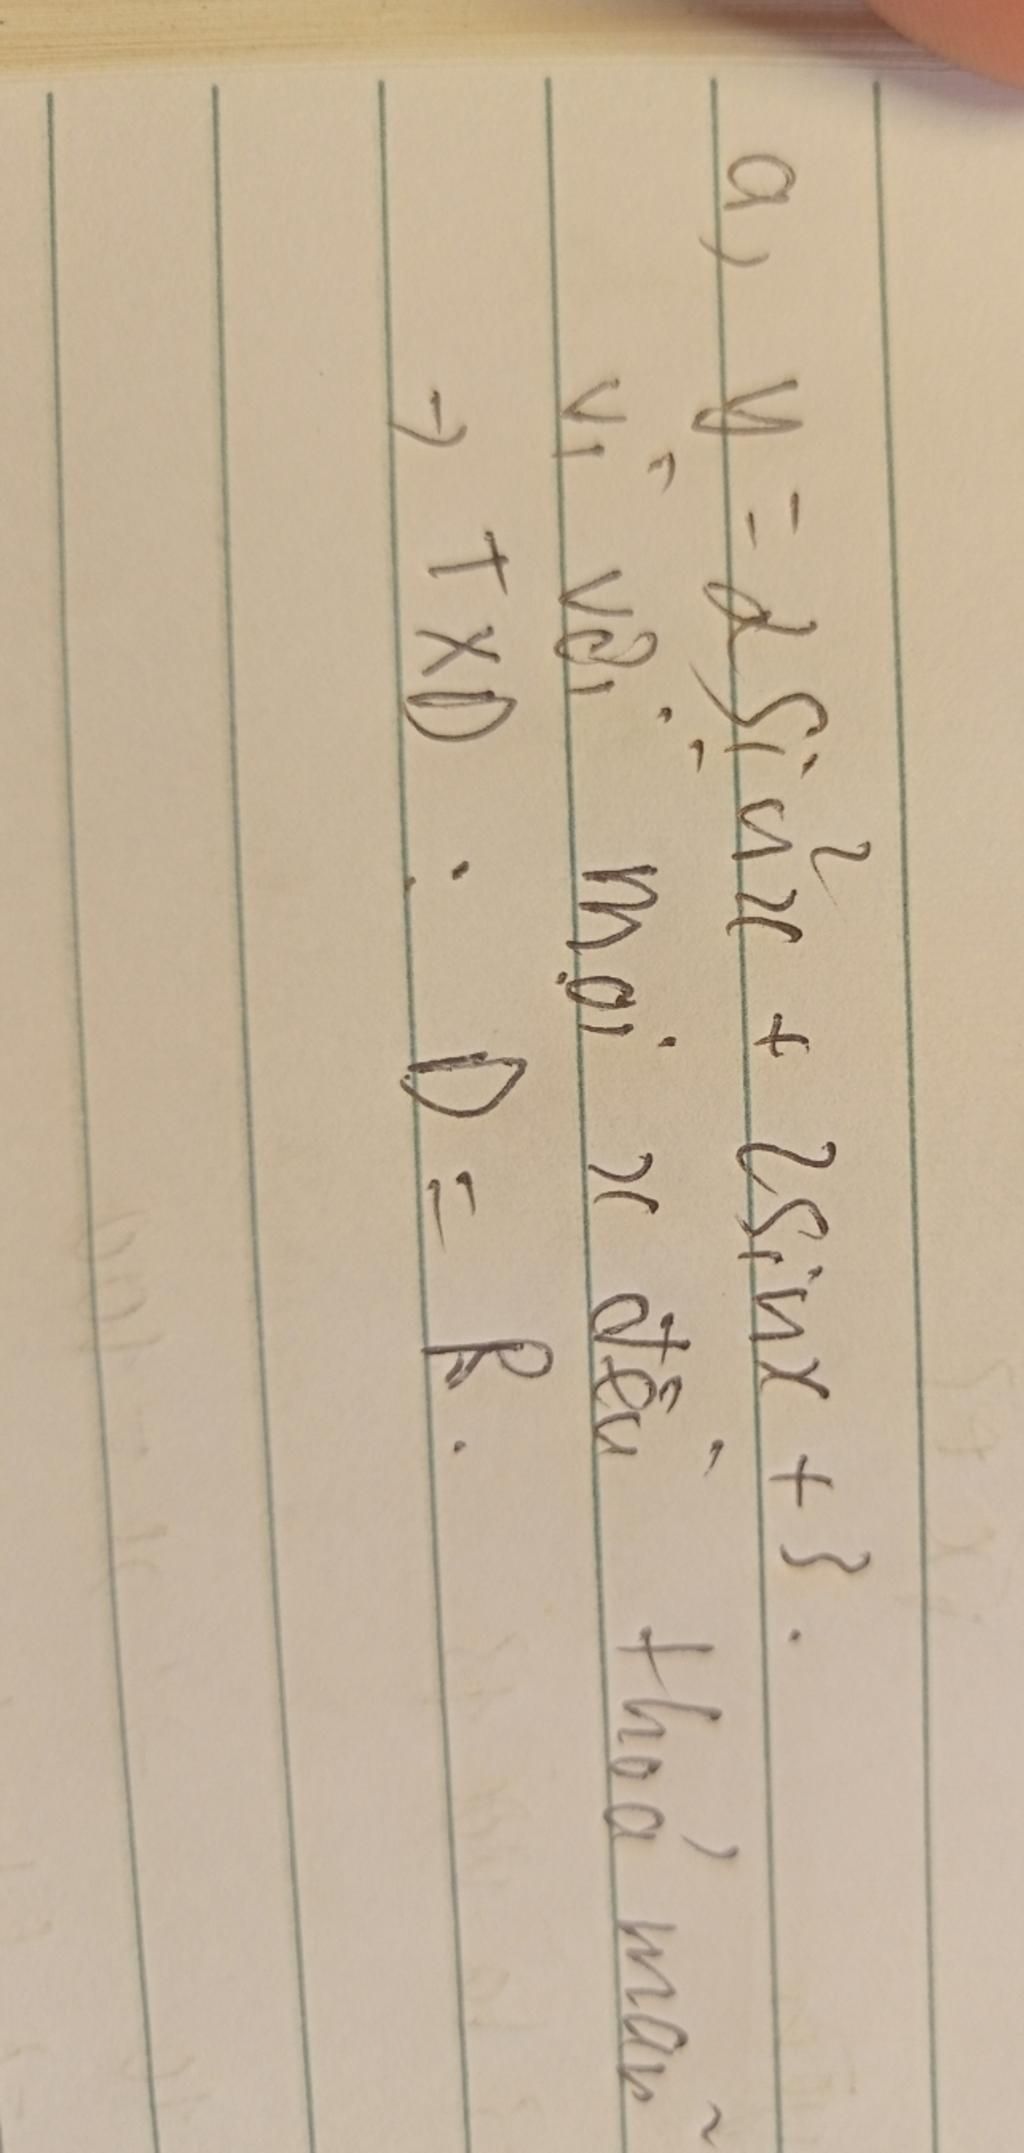 a, y = 2sin²x + 2sinx + 3.
vì với mọi x đều thoả mãn
→ TXD : D = R.